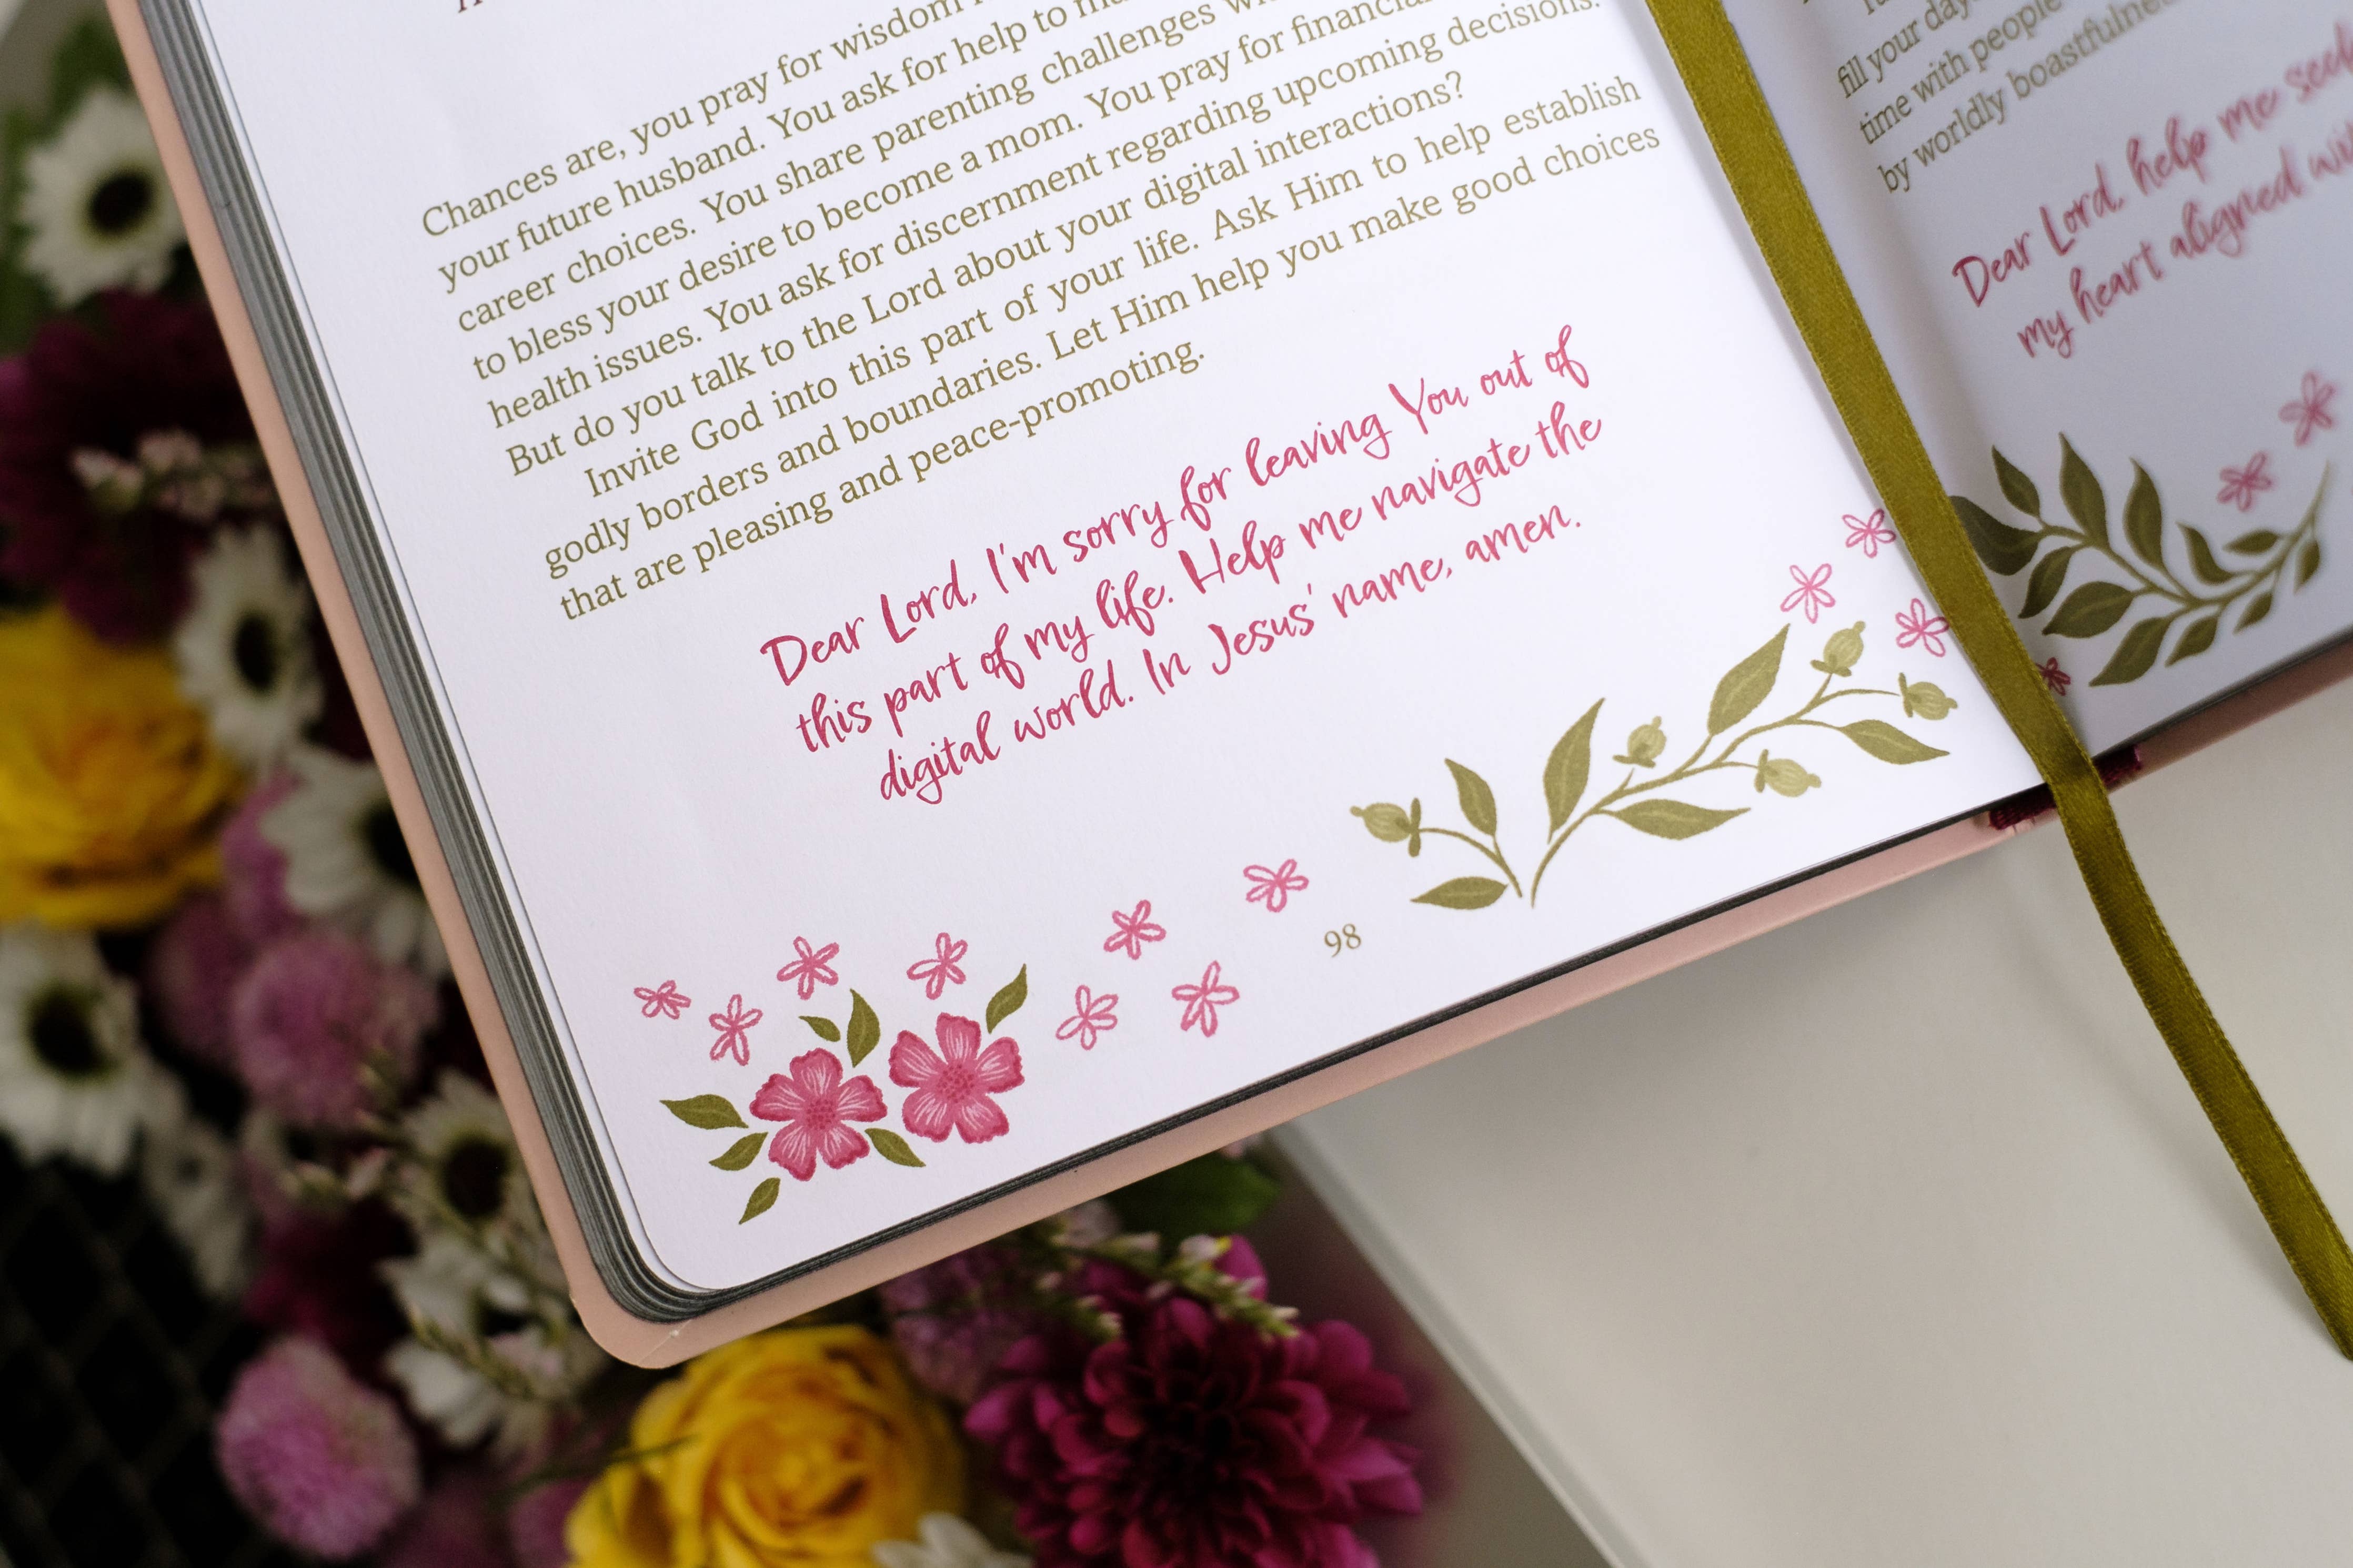 Chances are, you pray for wisdom
your future husband. You ask for help to
career choices. You share parenting challenges
to bless your desire to become a mom. You pray for financial
health issues. You ask for discernment regarding upcoming decisions.
But do you talk to the Lord about your digital interactions?
Invite God into this part of your life. Ask Him to help establish
godly borders and boundaries. Let Him help you make good choices
that are pleasing and peace-promoting.
Dear Lord, I'm sorry for leaving You out of
this part of my life. Help me navigate the
digital world. In Jesus' name, amen.
98
fill your
time with people
by worldly boastfulness
Dear Lord, help me seek
my heart aligned